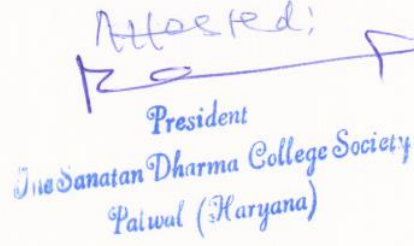 Attested:
President
The Sanatan Dharma College Society
Palwal (Haryana)